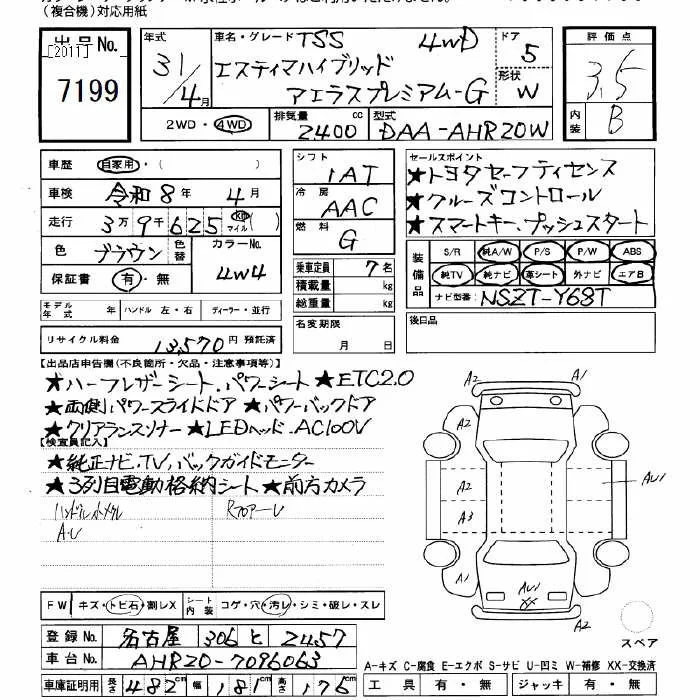 (複合機)対応用紙
出品No.
[2011]
7199
年式 31/4月
車名・グレード TSS 4WD
エスティマハイブリッド
アエラスプレミアム-G
ドア 5
形状 W
2WD・4WD
排気量 2400 cc
型式 DAA-AHR20W
評価点 3.5
内装 B
車歴 自家用・( )
車検 令和8年4月
走行 3万9千625 km マイル ( )
色 ブラウン 色替 カラーNo. 4W4
保証書 有・無
モデル年式 年 ハンドル 左・右 ディーラー・並行
リサイクル料金 13,570 円 預託済
シフト 1AT
冷房 AAC
燃料 G
乗車定員 7名
積載量 kg
総重量 kg
名変期限 月 日
セールスポイント
★トヨタセーフティセンス
★クルーズコントロール
★スマートキー、プッシュスタート
装備品 S/R 純A/W P/S P/W ABS
純TV 純ナビ 革シート 外ナビ エアB
ナビ型番: NSZT-Y68T
後日品
【出品店申告欄(不良箇所・欠品・注意事項等)】
★ハーフレザーシート、パワーシート ★ETC2.0
★両側パワースライドドア ★パワーバックドア
★クリアランスソナー ★LEDヘッド、AC100V
【検査員記入】
★純正ナビ、TV、バックガイドモニター
★3列目電動格納シート ★前方カメラ
A・U
A2 A1
A2
A2 AU1
A3
A1 AU1 A2
XX
FW キズ・トビ石・割レX シート内装 コゲ・穴・汚レ・シミ・破レ・スレ
スペア
登録No. 名古屋 306 と 2457
車台No. AHR20-7096063
車庫証明用 長さ 482cm 幅 181cm 高さ 176cm
A-キズ C-腐食 E-エクボ S-サビ U-凹ミ W-補修 XX-交換済
工具 有・無 ジャッキ 有・無